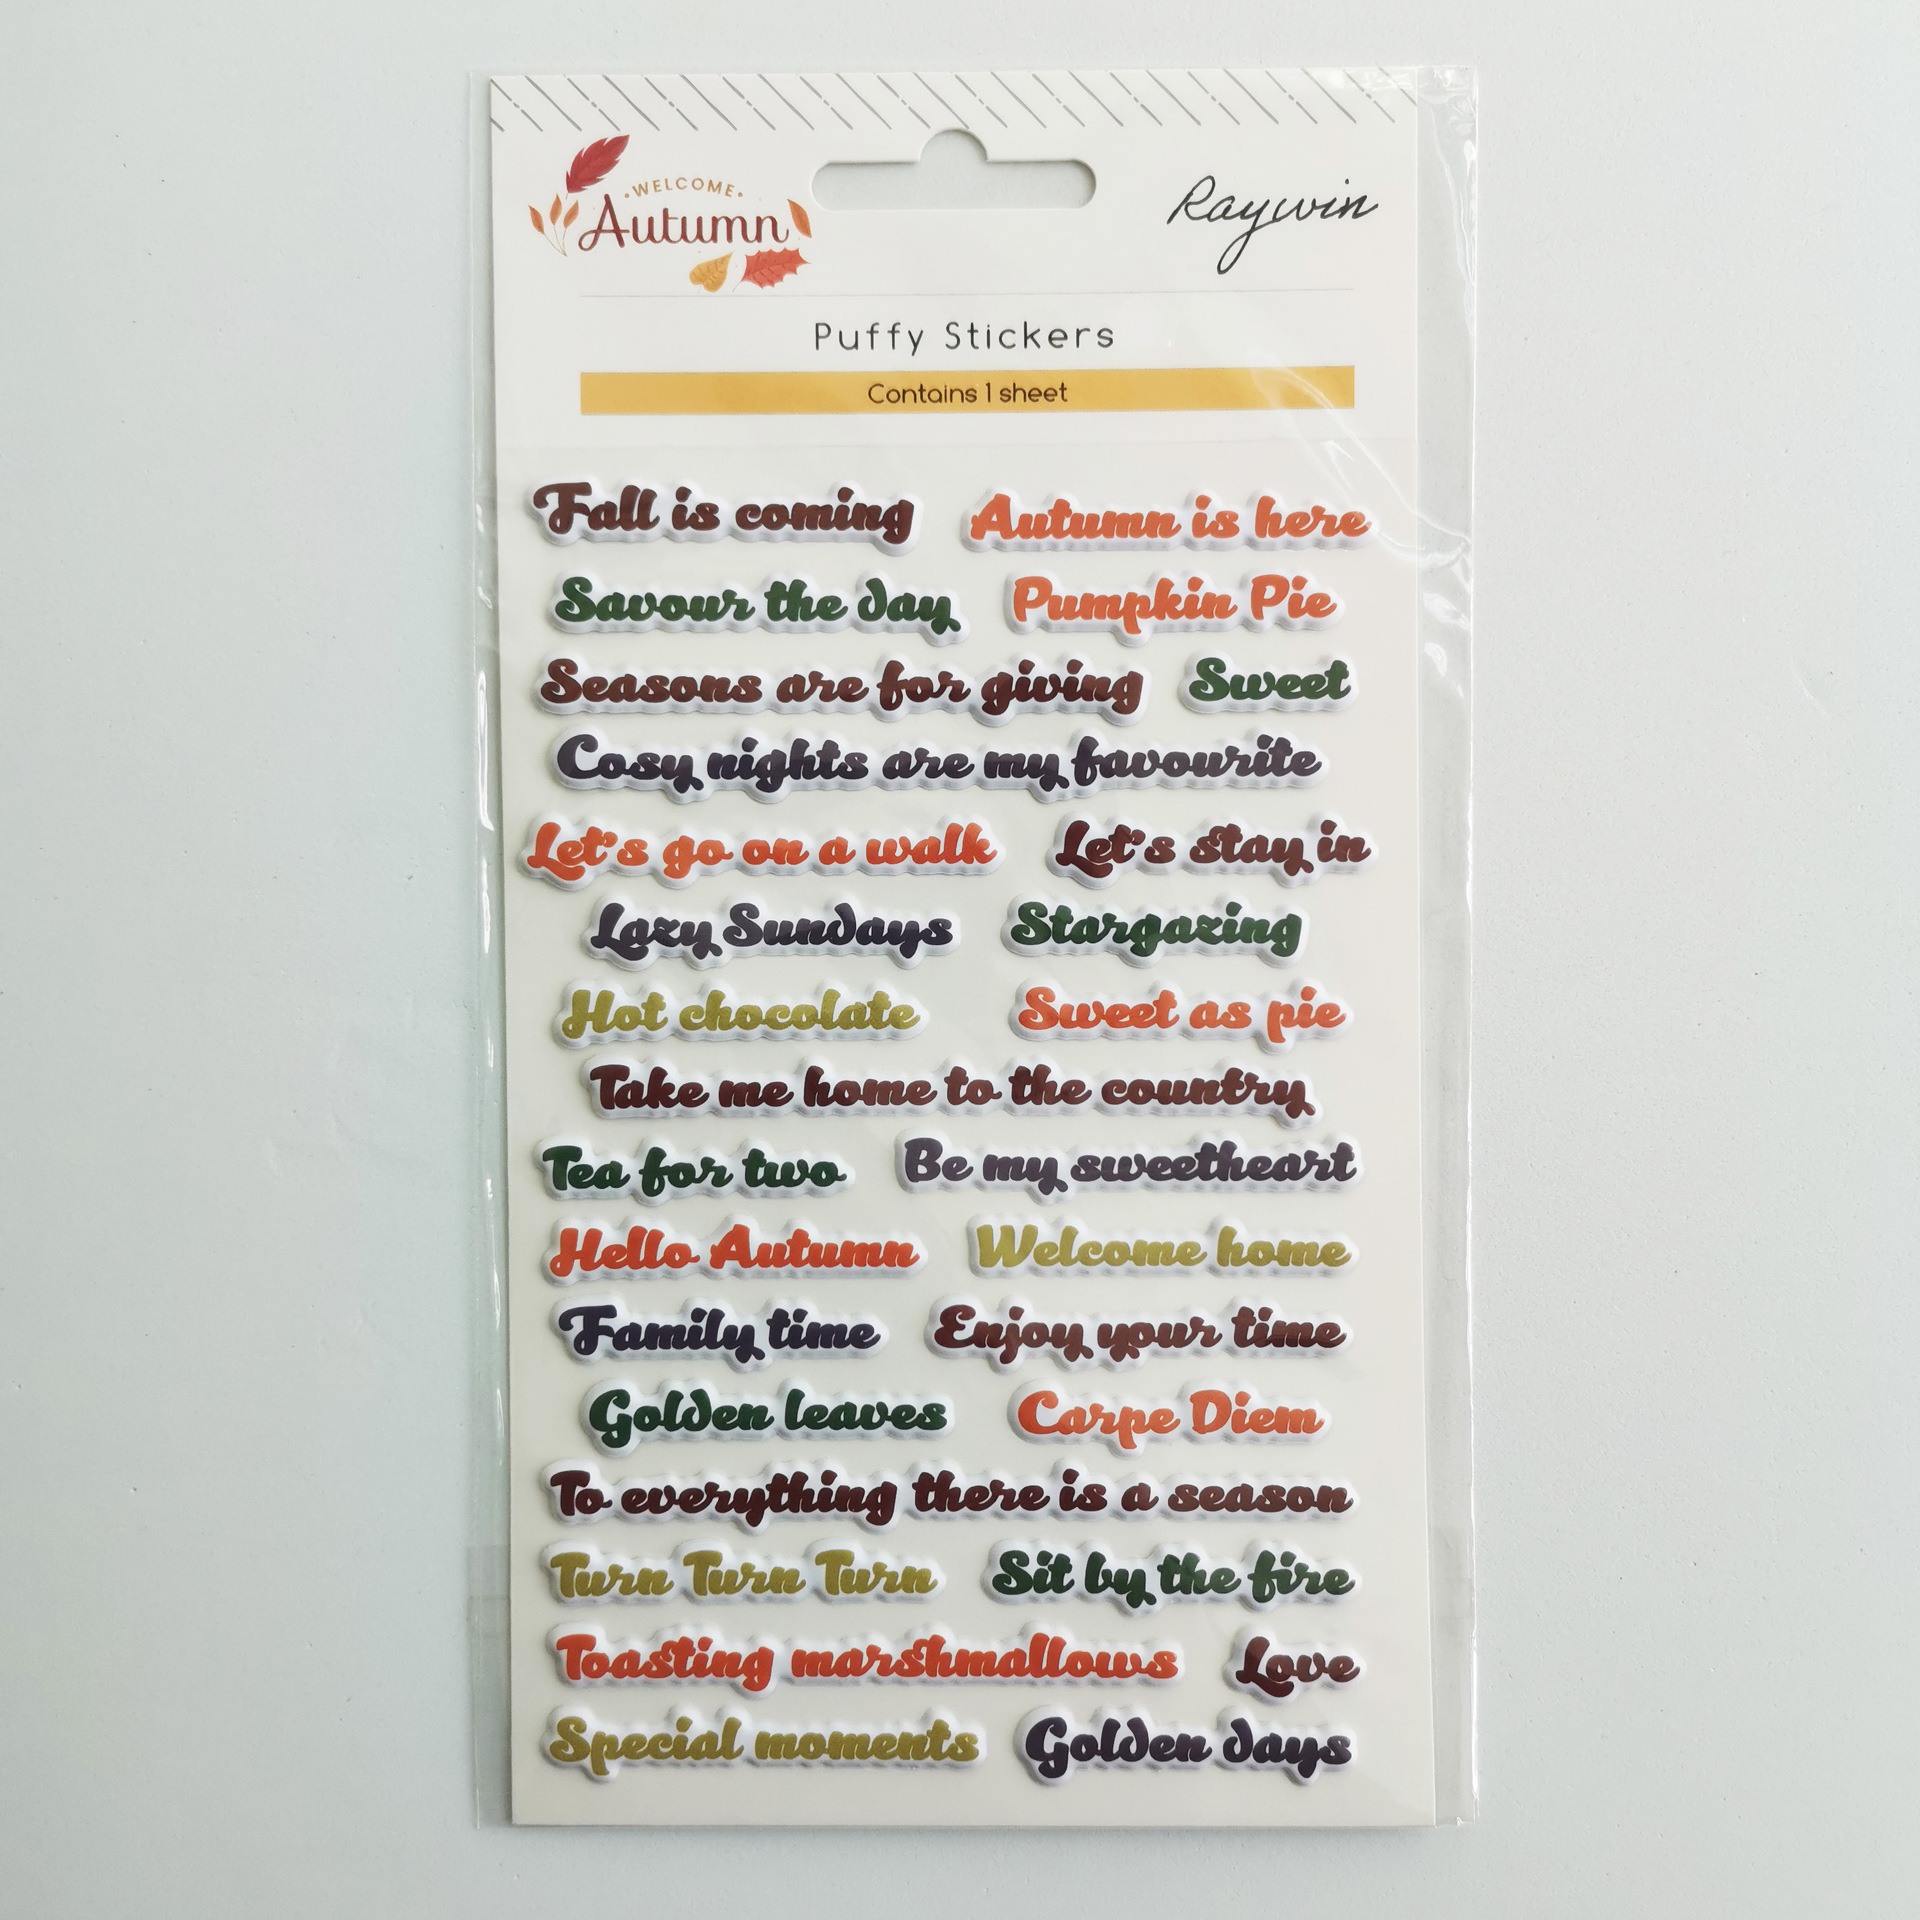 WELCOME
Autumn
Raywin
Puffy Stickers
Contains 1 sheet
Fall is coming
Autumn is here
Savour the day
Pumpkin Pie
Seasons are for giving
Sweet
Cosy nights are my favourite
Let's go on a walk
Let's stay in
Lazy Sundays
Stargazing
Hot chocolate
Sweet as pie
Take me home to the country
Tea for two
Be my sweetheart
Hello Autumn
Welcome home
Family time
Enjoy your time
Golden leaves
Carpe Diem
To everything there is a season
Turn Turn Turn
Sit by the fire
Toasting marshmallows
Love
Special moments
Golden days